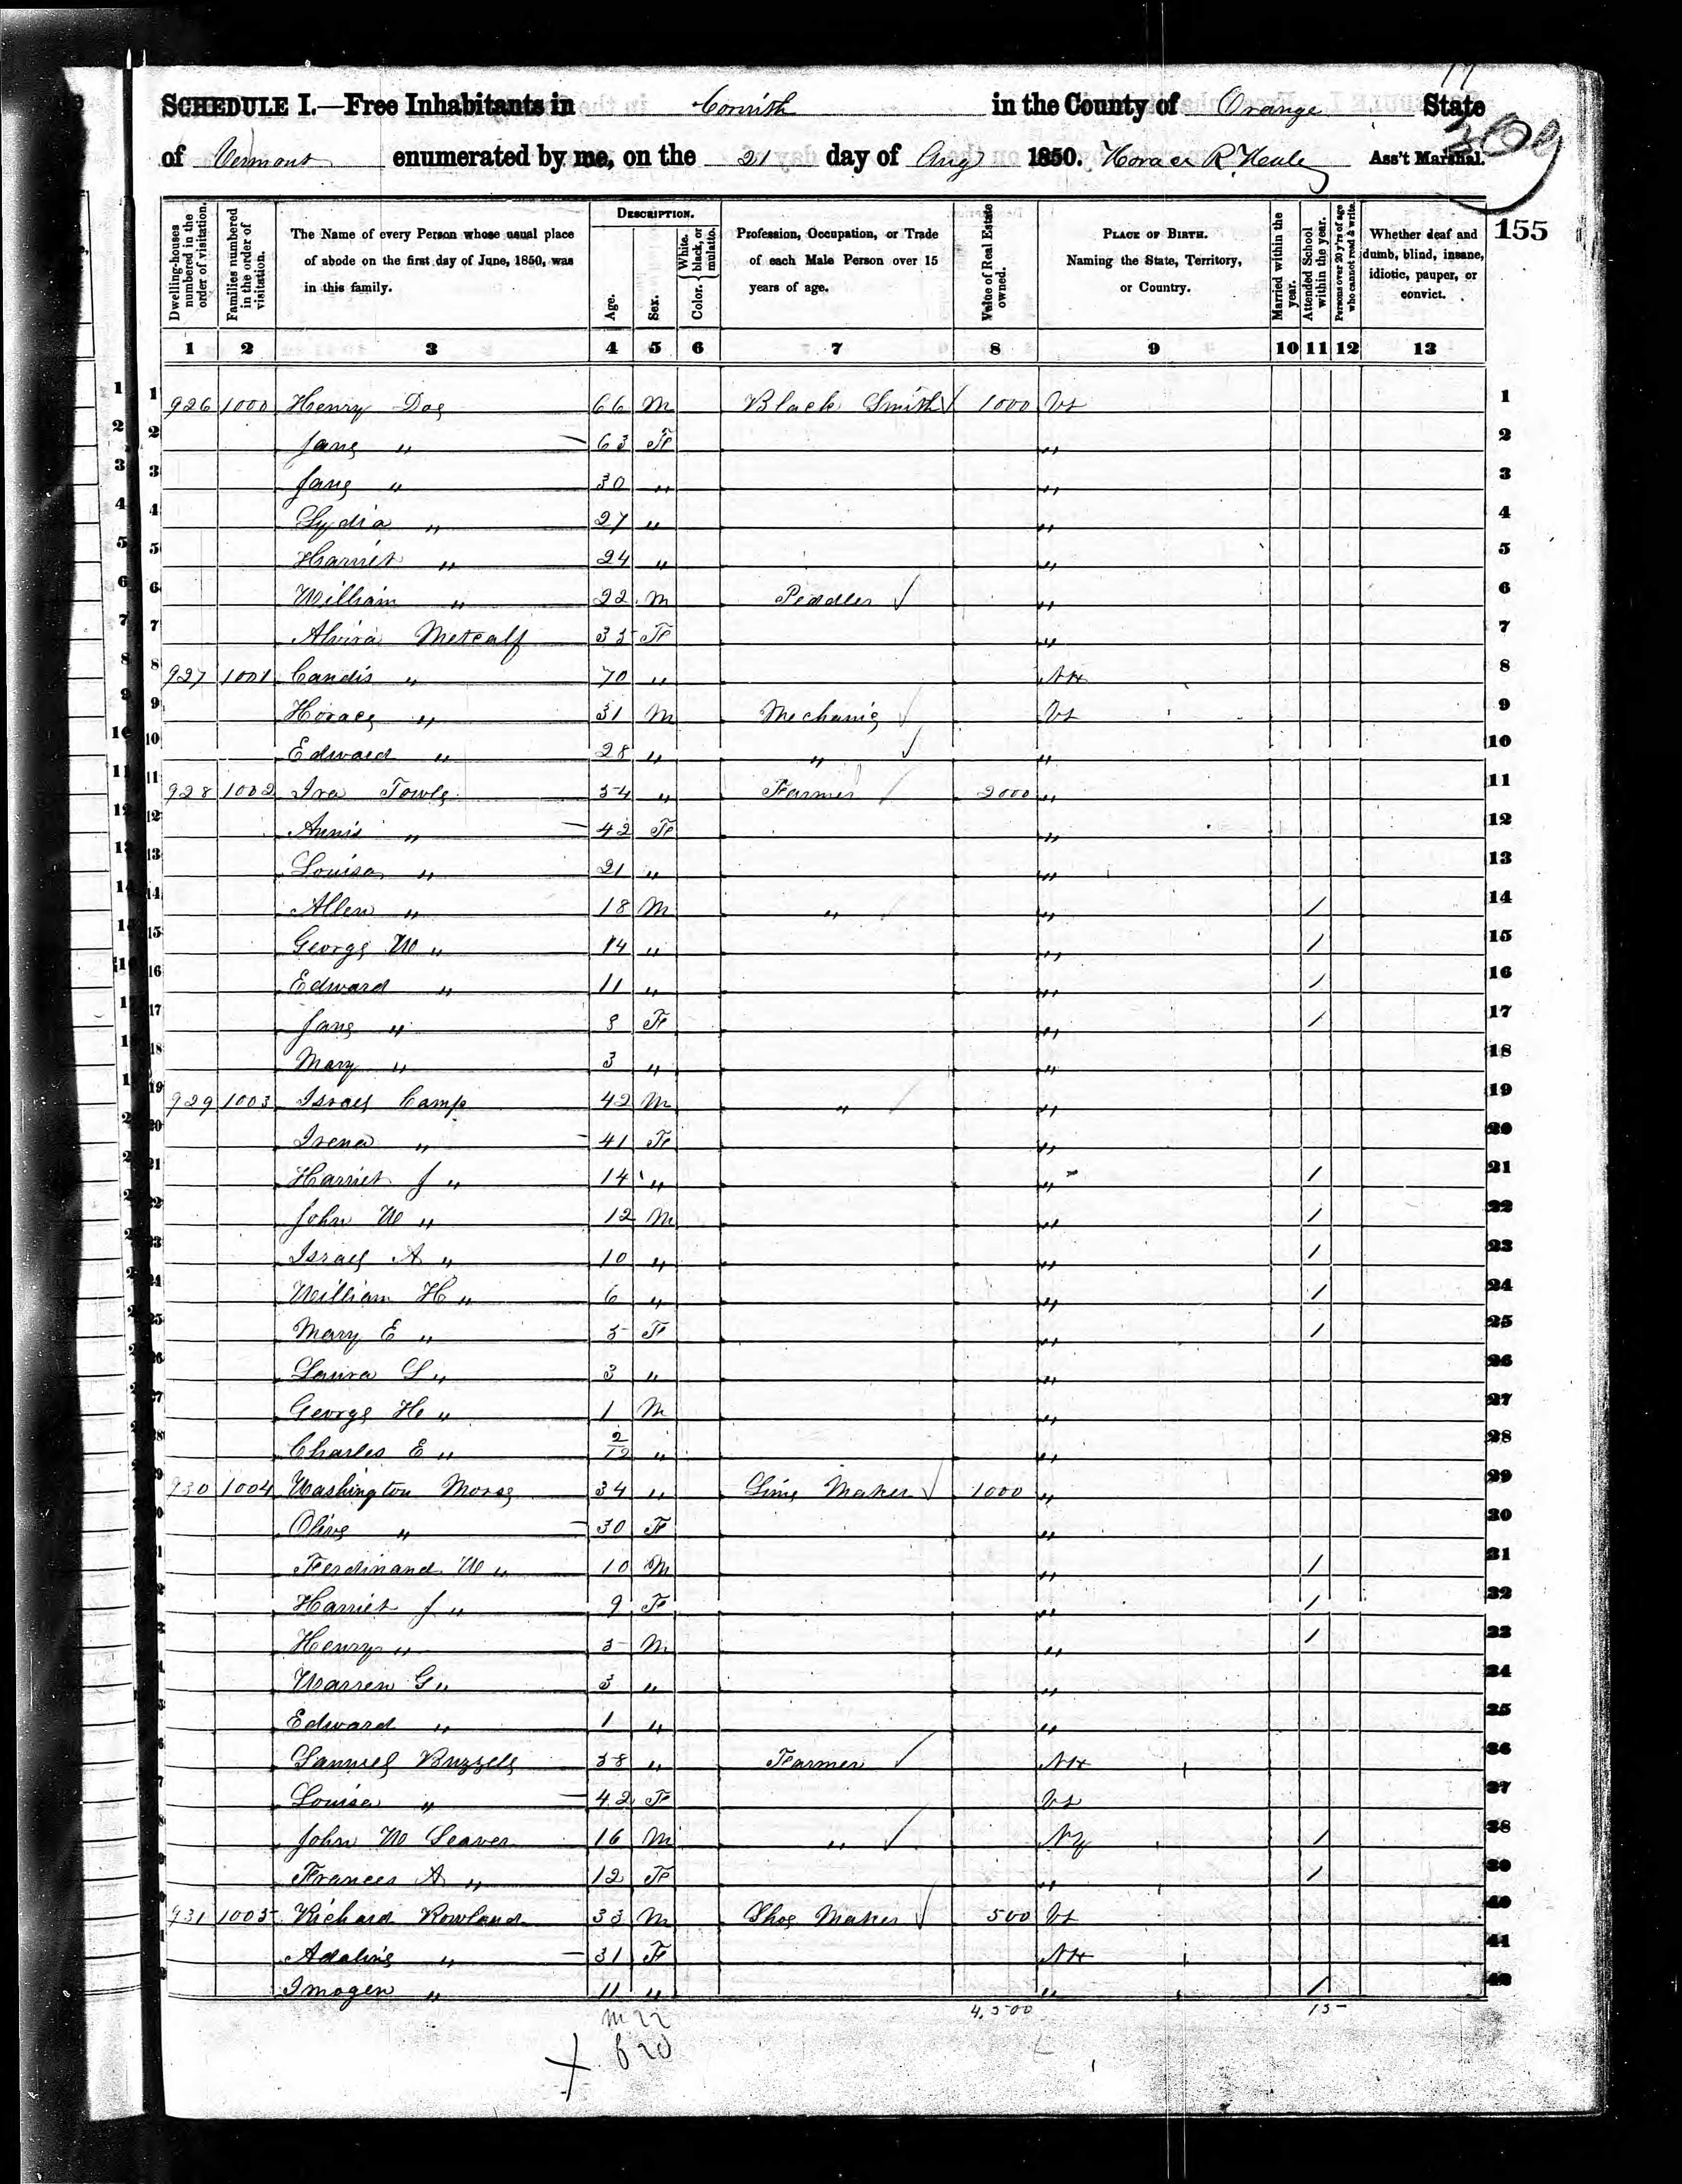 17
SCHEDULE I.—Free Inhabitants in Corinth in the County of Orange State
of Vermont enumerated by me, on the 21 day of Aug 1850. Horace R. Ass't Marshal.
309
155
Dwelling-houses numbered in the order of visitation.
Families numbered in the order of visitation.
The Name of every Person whose usual place of abode on the first day of June, 1850, was in this family.
DESCRIPTION.
Age.
Sex.
Color. { White, black, or mulatto.
Profession, Occupation, or Trade of each Male Person over 15 years of age.
Value of Real Estate owned.
PLACE OF BIRTH. Naming the State, Territory, or Country.
Married within the year.
Attended School within the year.
Persons over 20 y'rs of age who cannot read & write.
Whether deaf and dumb, blind, insane, idiotic, pauper, or convict.
1 2 3 4 5 6 7 8 9 10 11 12 13
1 926 1000 Henry Doe 66 M Black Smith ✓ 1000 Vt 1
2 Jane " 63 F " 2
3 Jane " 30 " " 3
4 Lydia " 27 " " 4
5 Harriet " 24 " " 5
6 William " 22 M Peddler ✓ " 6
7 Alvira Metcalf 35 F " 7
8 927 1001 Candis " 70 " NH 8
9 Horace " 31 M Mechanic ✓ Vt 9
10 Edward " 28 " " ✓ " 10
11 928 1002 Ira Towle 54 " Farmer ✓ 2000 " 11
12 Annis " 42 F " 12
13 Louisa " 21 " " 13
14 Allen " 18 M " " / 14
15 George W " 14 " " / 15
16 Edward " 11 " " / 16
17 Jane " 8 F " / 17
18 Mary " 3 " " 18
19 929 1003 Israel Camp 42 M " " 19
20 Irena " 41 F " 20
21 Harriet J " 14 " " / 21
22 John W " 12 M " / 22
23 Israel A " 10 " " / 23
24 William H " 6 " " / 24
25 Mary E " 5 F " / 25
26 Laura L " 3 " " 26
27 George H " 1 M " 27
28 Charles E " 2/12 " " 28
29 930 1004 Washington Morse 34 " Lime Maker ✓ 1000 " 29
30 Olive " 30 F " 30
31 Ferdinand W " 10 M " / 31
32 Harriet J " 9 F " / 32
33 Henry " 5 M " / 33
34 Warren G " 3 " " 34
35 Edward " 1 " " 35
36 Samuel Buzzell 58 " Farmer ✓ NH 36
37 Louisa " 42 F Vt 37
38 John W Seaver 16 M " ✓ NY / 38
39 Frances A " 12 F " / 39
40 931 1005 Richard Rowland 33 M Shoe Maker ✓ 500 Vt 40
41 Adaline " 31 F NH 41
42 Imogen " 11 " " / 42
m 22 4,500 15
f 20